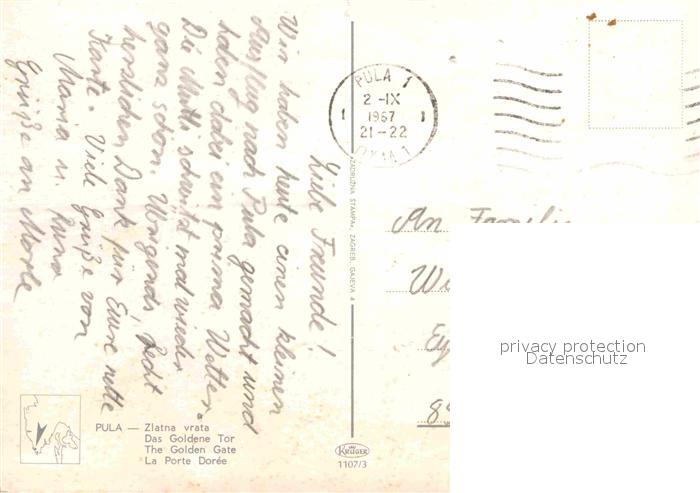 Liebe Freunde!
Wir haben heute einen kleinen
Ausflug nach Pula gemacht und
haben dabei ein prima Wetter.
Die Mutti schwitzt mal wieder
ganz schön. Übrigends, recht
herzlichen Dank für Eure nette
Karte. Viele Grüße von
Mama u.
Grüße an
PULA 1
2-IX
1967
21-22
1 1
ZADRUŽNA ŠTAMPA, ZAGREB, GAJEVA 4
An Familie
privacy protection
Datenschutz
PULA — Zlatna vrata
Das Goldene Tor
The Golden Gate
La Porte Dorée
KRÜGER
1107/3